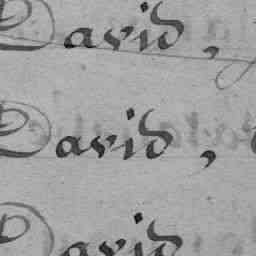 David,
David,
David